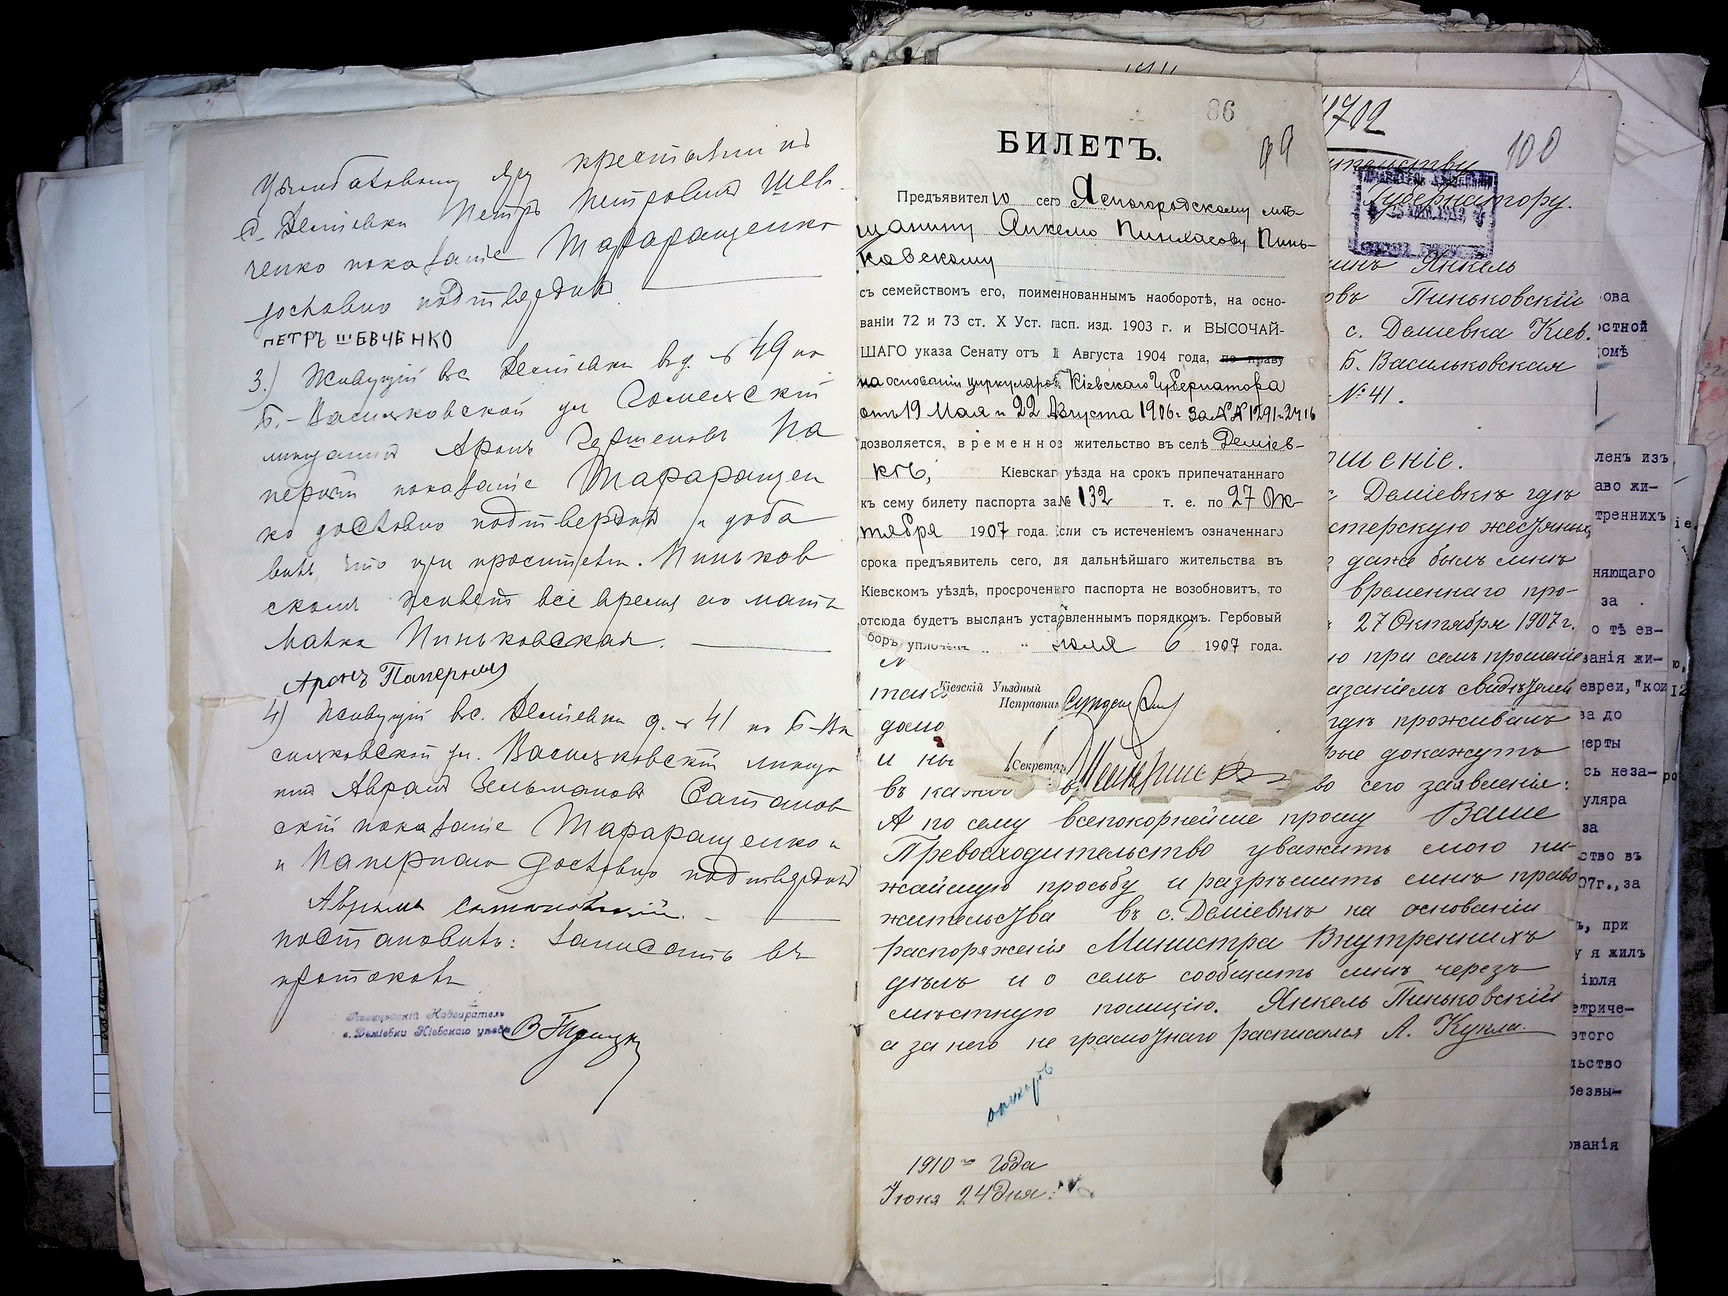 крестьянинъ
с. Деміевки Петръ Петровичъ Шев-
ченко показаніе Тараращенко
дословно подтвердилъ
ПЕТРЪ ШЕВЧЕНКО
3.) Живущій въ с. Деміевки въ д. № 49 по
Б.-Васильковской ул. Гомельскій
мѣщанинъ Аронъ Гершеновъ Па
перный показаніе Тараращен
ко дословно подтвердилъ и доба
вилъ что при просителѣ Пиньков
скомъ живетъ все время его мать
Малка Пиньковская.
Аронъ Паперный
4) Живущій въ с. Деміевки д. № 41 по Б-Ва
сильковской ул. Васильковскій мѣща
нинъ Авраамъ Зельмановъ Сатанов
скій показаніе Тараращенко и
и Папернаго дословно подтвердилъ
Постановилъ: записать въ
протоколъ
Полицейскій Надзиратель
с. Деміевки Кіевскаго уѣзда
86
БИЛЕТЪ.
99
Предъявителю сего Ясногородскому мѣ-
щанину Янкелю Пинхасову Пинь-
ковскому
съ семействомъ его, поименованнымъ наоборотѣ, на осно-
ваніи 72 и 73 ст. X Уст. пасп. изд. 1903 г. и ВЫСОЧАЙ-
ШАГО указа Сенату отъ Августа 1904 года, по праву
на основаніи циркуляровъ Кіевскаго Губернатора
отъ 19 Мая и 22 Августа 1906 г. за №№ 1291 и 2416
дозволяется, временное жительство въ селѣ Деміев-
кѣ, Кіевскаго уѣзда на срокъ припечатаннаго
къ сему билету паспорта за № 132 т. е. по 27 Ок-
тября 1907 года. Если съ истеченіемъ означеннаго
срока предъявитель сего, для дальнѣйшаго жительства въ
Кіевскомъ уѣздѣ, просроченнаго паспорта не возобновитъ, то
отсюда будетъ высланъ установленнымъ порядкомъ. Гербовый
сборъ уплоченъ „ “ іюля 6 1907 года.
Кіевскій Уѣздный
Исправникъ
Секретарь
1702
100
Губернатору.
Янкель
Пиньковскій
с. Деміевка Кіев.
Б. Васильковская
№ 41.
шеніе.
с. Деміевкѣ гдѣ
стерскую жестяныхъ
даже былъ мнѣ
временнаго про-
27 Октября 1907 г.
ю при семъ прошеніе
азаніемъ свидѣтелей
гдѣ проживалъ
рые докажутъ
во сего заявленія:
А по сему всепокорнейше прошу Ваше
Превосходительство уважить мою ни-
жайшую просьбу и разрѣшить мнѣ право
жительства въ с. Деміевкѣ на основаніи
распоряженія Министра Внутреннихъ
дѣлъ и о семъ сообщить мнѣ черезъ
мѣстную полицію. Янкель Пиньковскій
а за него не грамотнаго расписался А. Кукла
1910 года
Іюня 24 дня.
ова
остной
омѣ
ленъ изъ
аво жи-
тренних ъ
няющаго
за
о тѣ ев-
ванія жи-
евреи, "кои
за до
черты
сь неза-
уляра
за
ство въ
07г., за
ъ, при
у я жилъ
іюля
етриче-
этого
льство
безвы-
ованія